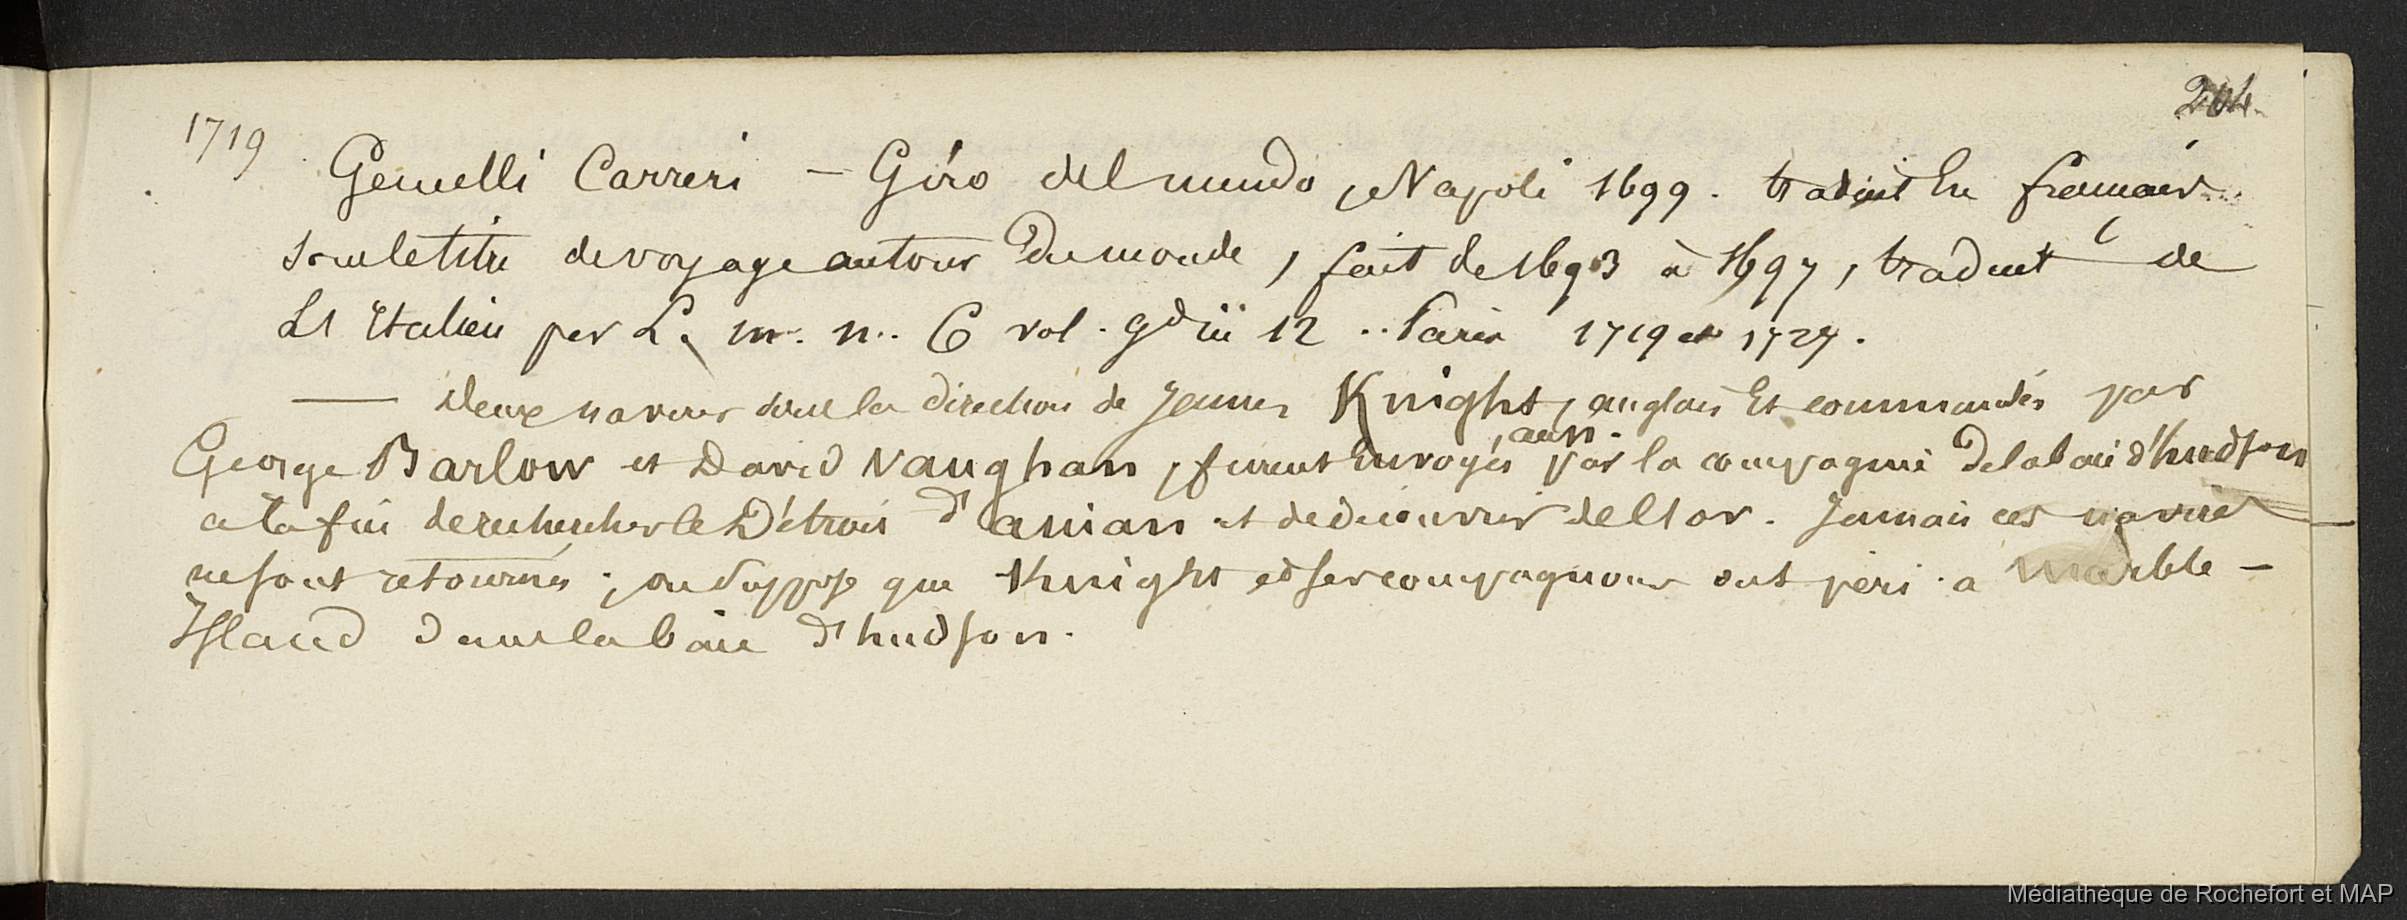 204
1719
Gemelli Carreri – Giro del mundo, Napoli 1699. traduit En francais
sous le titre de voyage autour Du monde, fait de 1693 à 1697, traduit de
L'Italien par L. m. n. 6 vol. gd in 12 .. Paris 1719 et 1727.
— Deux navires sous la direction de James Knight, anglais Et commandés par
George Barlow et David Vaughan, furent Envoyés, aussi par la compagnie De la baie d'hudson
a la fin de rechercher le Détroit d'anian et de découvrir de l'or. Jamais ces navires
ne sont retournés ; on suppose que Knight et ses compagnons ont péri a Marble –
Island dans la baie d'hudson.
Médiathèque de Rochefort et MAP